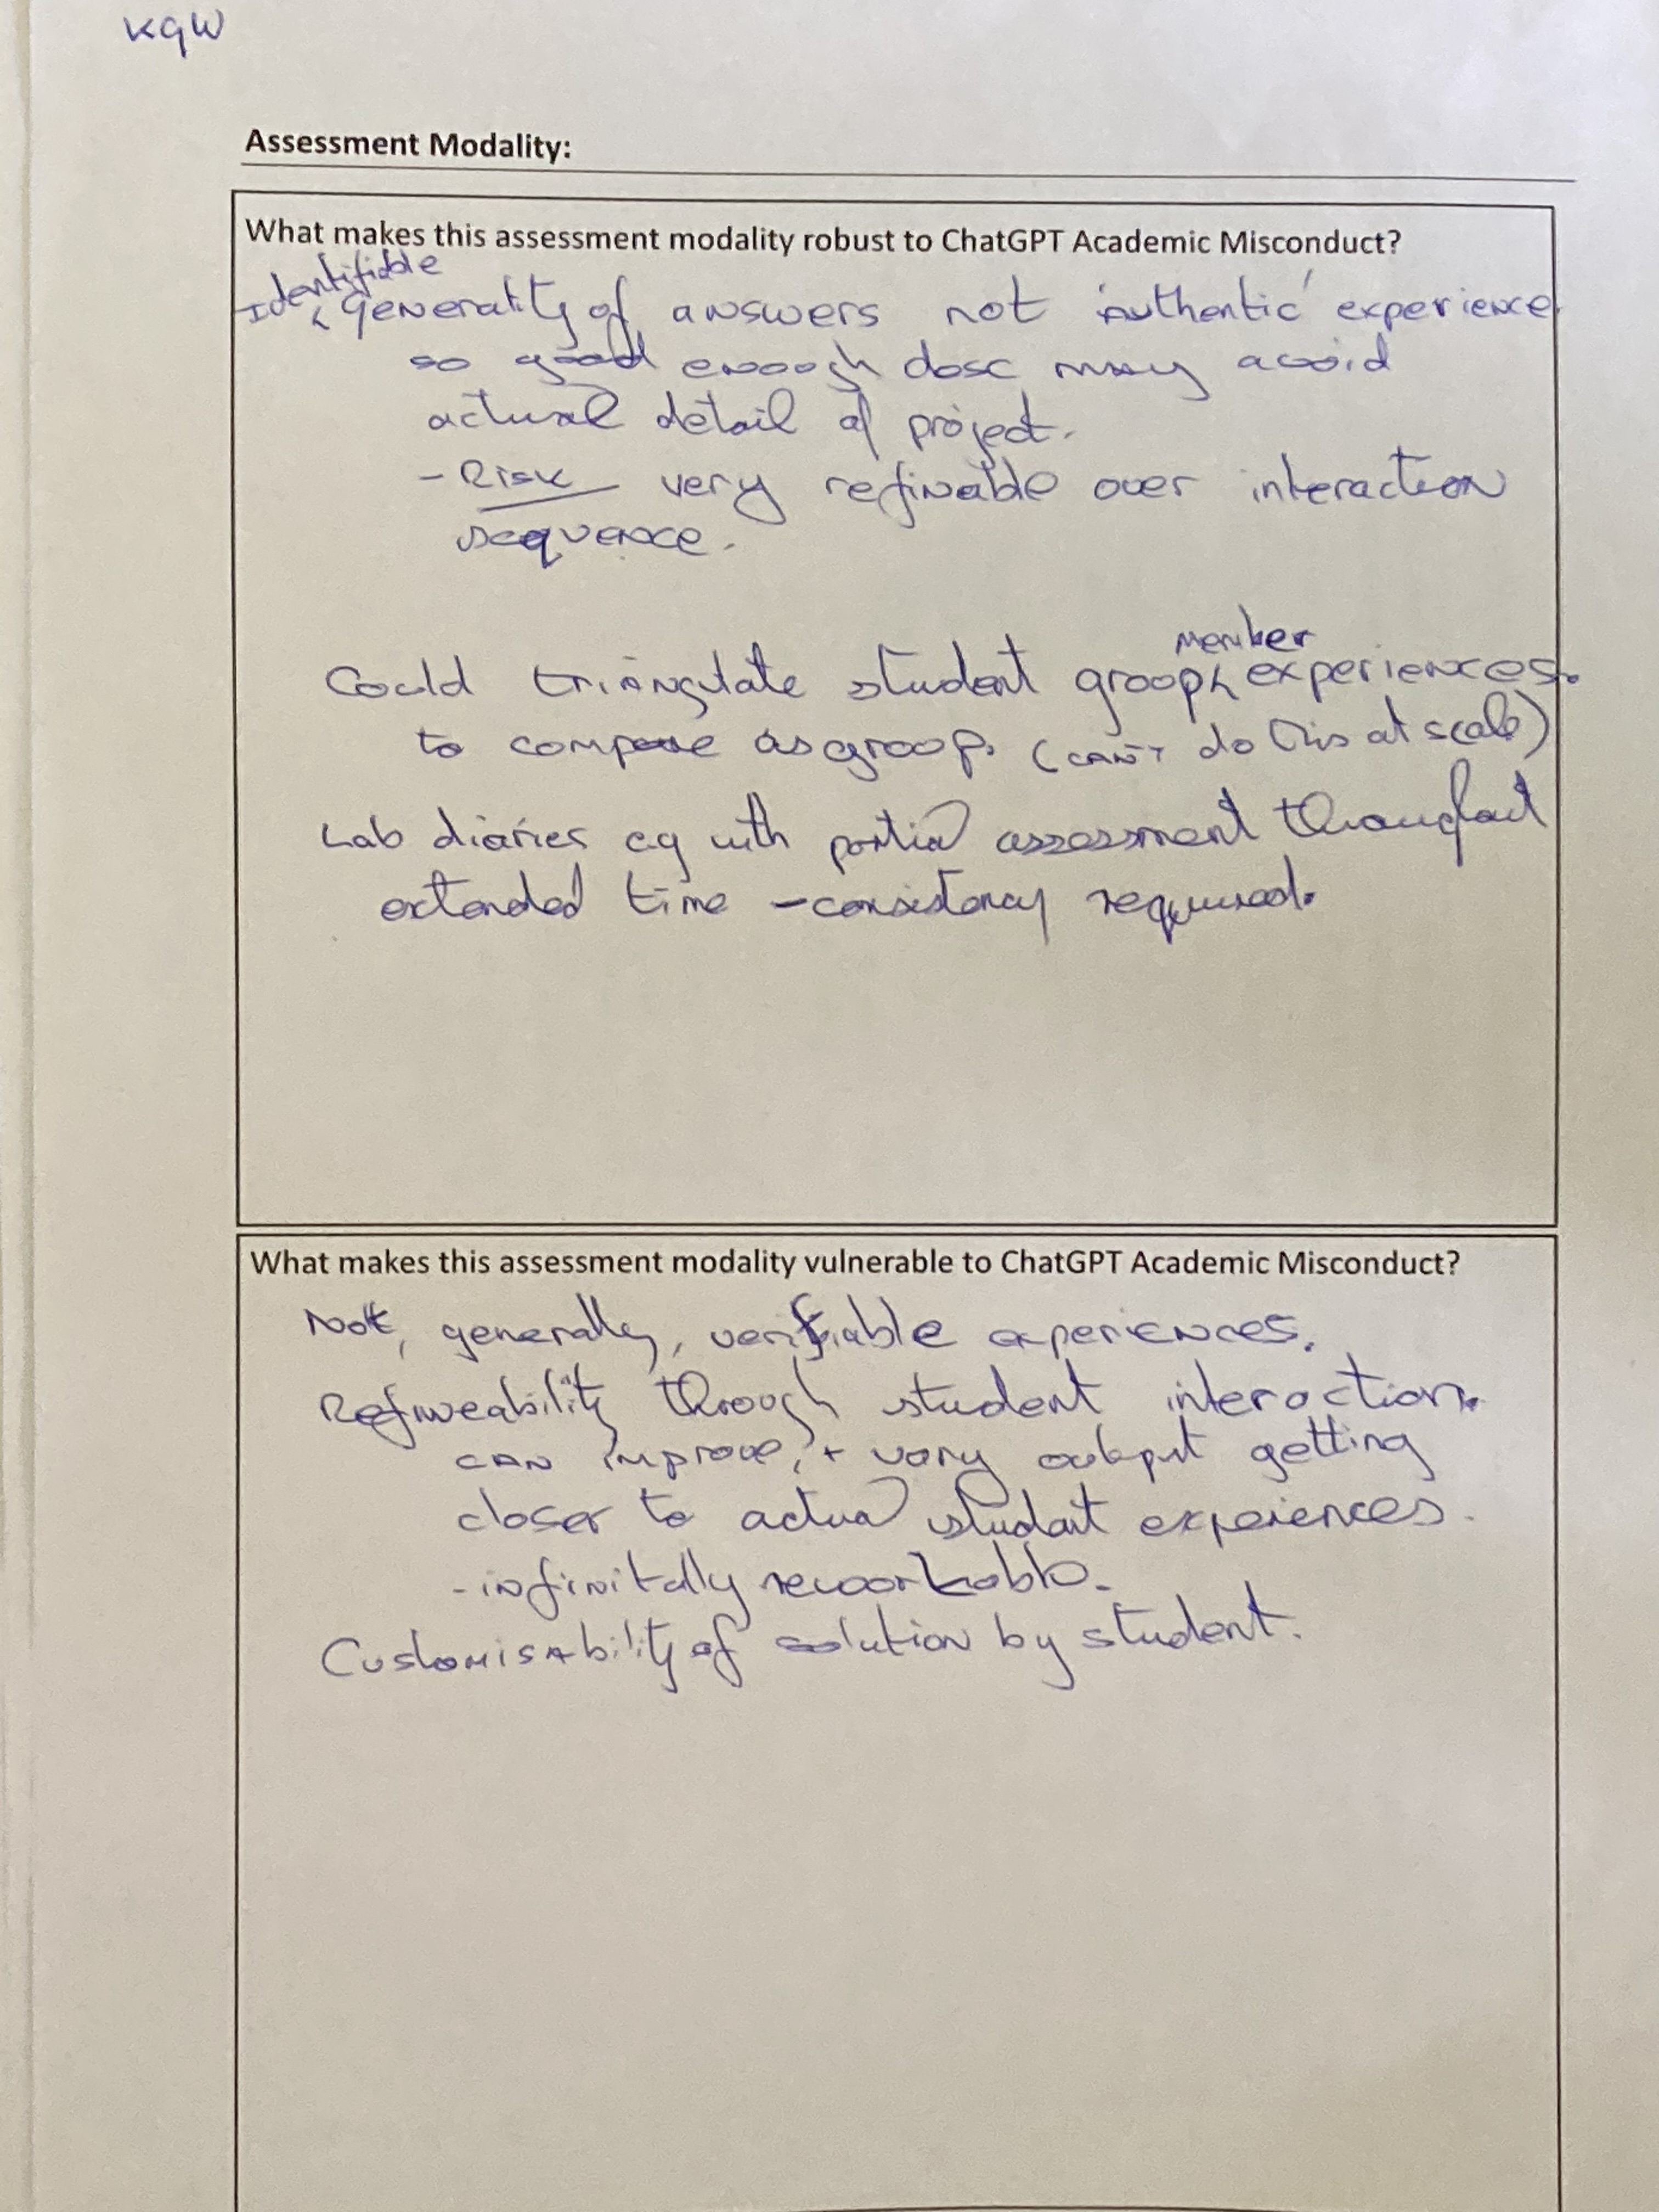 KGW
Assessment Modality:
What makes this assessment modality robust to ChatGPT Academic Misconduct?
Identifiable
generality of answers not 'authentic' experience
so good enough may avoid
actual detail of project.
- Risk very refinable over interaction
sequence.
member
Could triangulate student group experiences.
to compare as group. (CAN'T do this at scale)
Lab diaries eg with partial assessment throughout
extended time - consistency required.
What makes this assessment modality vulnerable to ChatGPT Academic Misconduct?
Not, generally, verifiable experiences.
Refineability through student interaction.
CAN improve, + vary output getting
closer to actual student experiences.
- infinitally reworkable.
Customisability of solution by student.